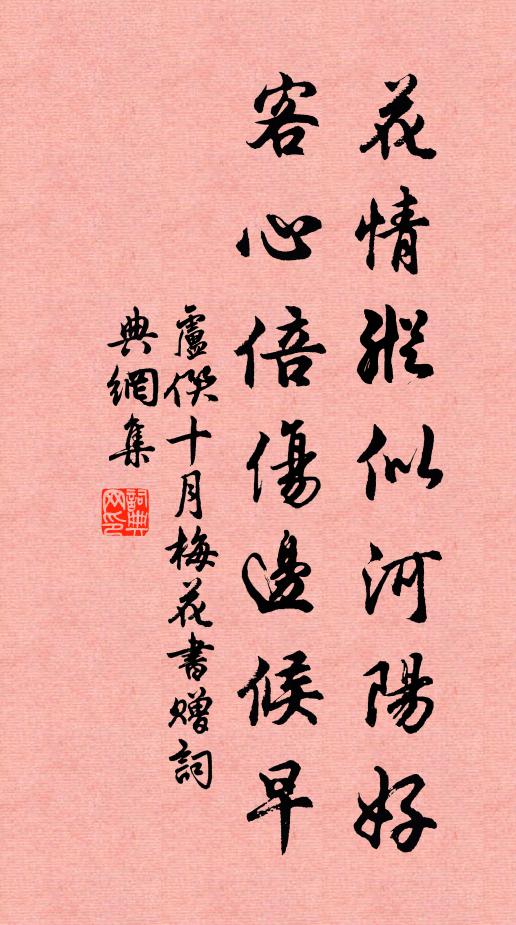 花情縱似河陽好
客心倍傷邊候早
盧僎十月梅花書贈詞
典網集
詞典網印